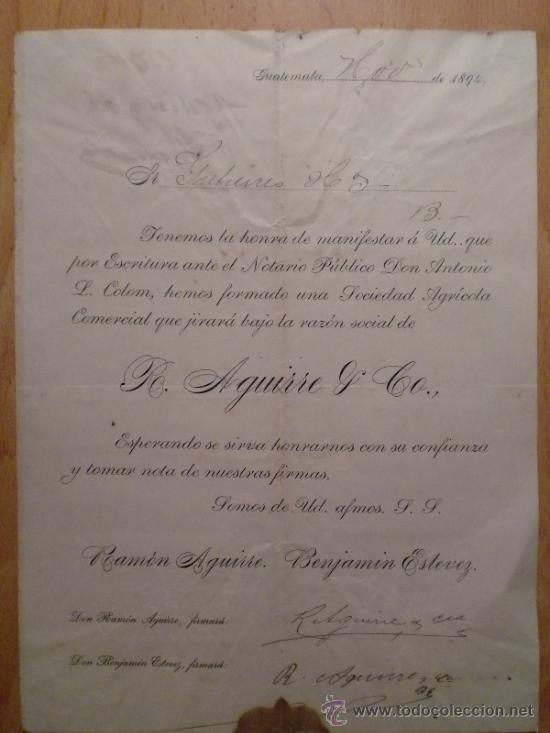 Guatemala, Nov de 1894.
Sr Gutierres
B.-
Tenemos la honra de manifestar á Ud.. que
por Escritura ante el Notario Público Don Antonio
L. Colom, hemos formado una Sociedad Agrícola
Comercial que jirará bajo la razón social de
R. Aguirre & Co.,
Esperando se sirva honrarnos con su confianza
y tomar nota de nuestras firmas.
Somos de Ud. afmos. S. S.
Ramón Aguirre. Benjamin Estevez.
Don Ramón Aguirre, firmará: R Aguirre & Cia
Don Benjamin Estevez, firmará: R. Aguirre, & Co
www.todocoleccion.net